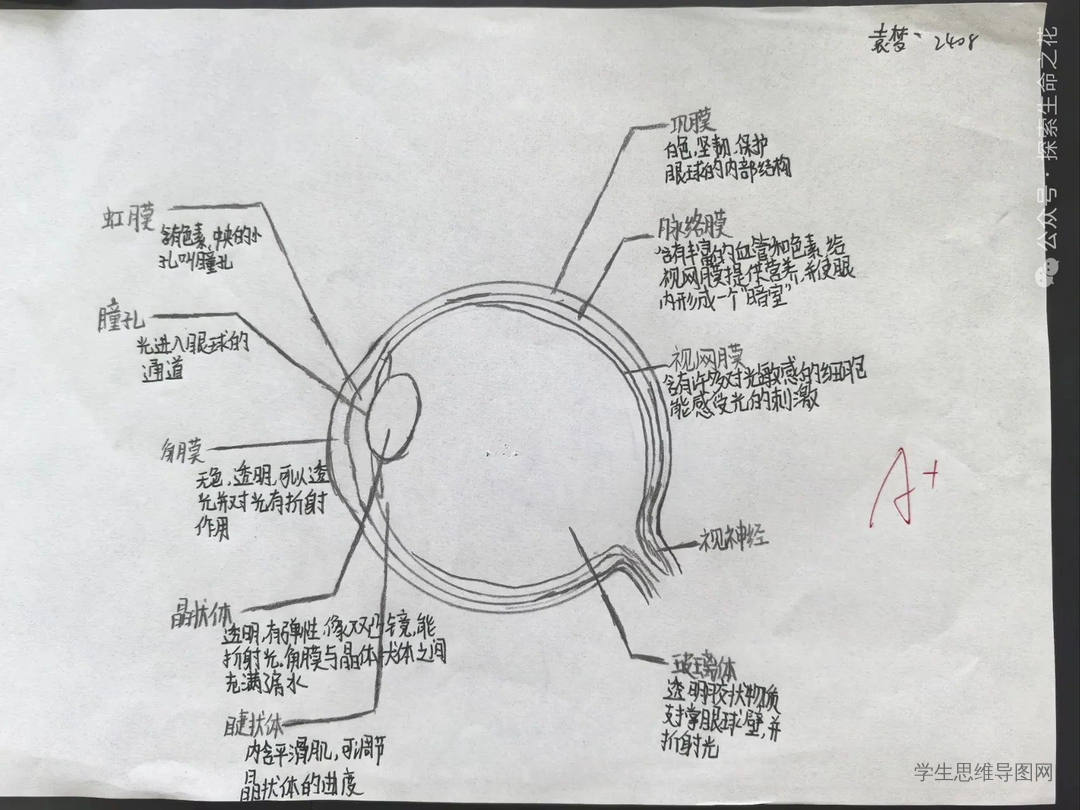 袁梦、2408
巩膜
白色,坚韧,保护
眼球的内部结构
虹膜
含有色素,中央的小
孔叫瞳孔
脉络膜
含有丰富的血管和色素,给
视网膜提供营养,并使眼
内形成一个"暗室"
瞳孔
光进入眼球的
通道
视网膜
含有许多对光敏感的细胞
能感受光的刺激
角膜
无色,透明,可以透
光并对光有折射
作用
A+
视神经
晶状体
透明,有弹性,像双凸透镜,能
折射光。角膜与晶体状体之间
充满房水
玻璃体
透明胶状物质
支撑眼球壁,并
折射光
睫状体
内含平滑肌,可调节
晶状体的曲度
公众号·探索生命之花
学生思维导图网